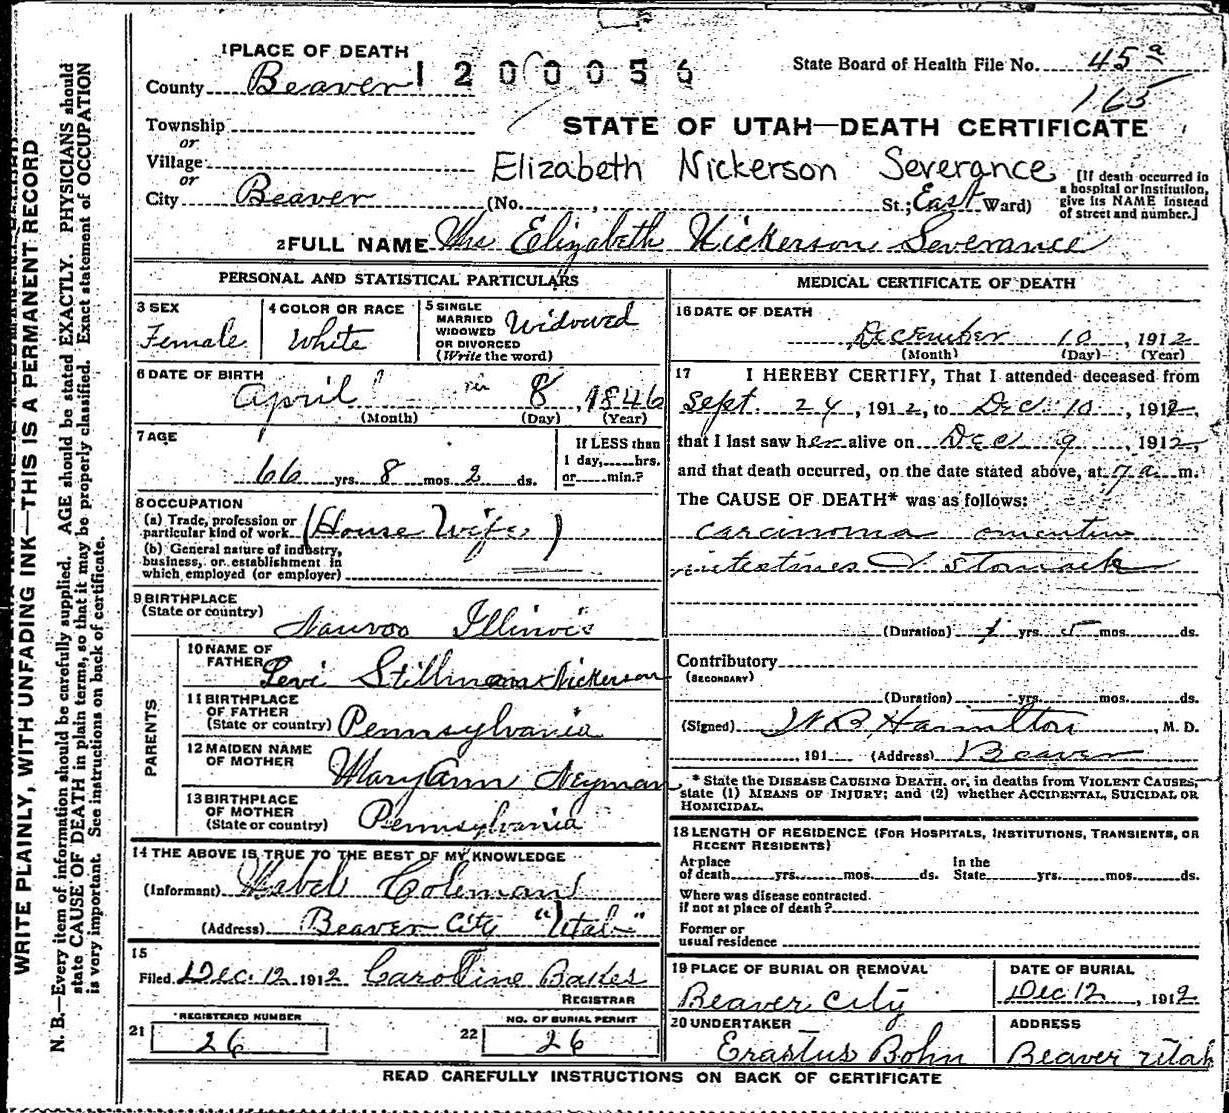 1 PLACE OF DEATH
County Beaver 1200056
State Board of Health File No. 45 a
165
Township
or
STATE OF UTAH—DEATH CERTIFICATE
Village
or
Elizabeth Nickerson Severance
City Beaver (No. , St.; East Ward)
[If death occurred in a hospital or institution, give its NAME instead of street and number.]
2 FULL NAME Mrs Elizabeth Nickerson Severance
PERSONAL AND STATISTICAL PARTICULARS
3 SEX
Female
4 COLOR OR RACE
White
5 SINGLE
MARRIED
WIDOWED
OR DIVORCED
(Write the word)
Widowed
6 DATE OF BIRTH
April 8, 1846
(Month) (Day) (Year)
7 AGE
66 yrs. 8 mos. 2 ds.
If LESS than
1 day, hrs.
or min.?
8 OCCUPATION
(a) Trade, profession or
particular kind of work (House Wife)
(b) General nature of industry,
business, or establishment in
which employed (or employer)
9 BIRTHPLACE
(State or country)
Nauvoo Illinois
PARENTS
10 NAME OF
FATHER Levi Stillman Nickerson
11 BIRTHPLACE
OF FATHER
(State or country) Pennsylvania
12 MAIDEN NAME
OF MOTHER
Mary Ann Neyman
13 BIRTHPLACE
OF MOTHER
(State or country) Pennsylvania
14 THE ABOVE IS TRUE TO THE BEST OF MY KNOWLEDGE
(Informant) Isabel Colemans
(Address) Beaver City "Utah"
15
Filed Dec. 12 1912 Caroline
REGISTRAR
21 REGISTERED NUMBER
26
22 NO. OF BURIAL PERMIT
26
MEDICAL CERTIFICATE OF DEATH
16 DATE OF DEATH
December 10, 1912
(Month) (Day) (Year)
17 I HEREBY CERTIFY, That I attended deceased from
Sept. 24, 1912, to Dec. 10, 1912,
that I last saw her alive on Dec 9, 1912,
and that death occurred, on the date stated above, at 7 a m.
The CAUSE OF DEATH* was as follows:
carcinoma omentum
intestines & stomach
(Duration) 1 yrs. 5 mos. ds.
Contributory
(SECONDARY)
(Duration) yrs. mos. ds.
(Signed) W B Hamilton, M. D.
, 191 (Address) Beaver
* State the DISEASE CAUSING DEATH, or, in deaths from VIOLENT CAUSES,
state (1) MEANS OF INJURY; and (2) whether ACCIDENTAL, SUICIDAL OR
HOMICIDAL.
18 LENGTH OF RESIDENCE (FOR HOSPITALS, INSTITUTIONS, TRANSIENTS, OR
RECENT RESIDENTS)
At place
of death yrs. mos. ds.
In the
State yrs. mos. ds.
Where was disease contracted.
if not at place of death?
Former or
usual residence
19 PLACE OF BURIAL OR REMOVAL
Beaver City
DATE OF BURIAL
Dec 12, 1912
20 UNDERTAKER
Erastus Bohn
ADDRESS
Beaver Utah
READ CAREFULLY INSTRUCTIONS ON BACK OF CERTIFICATE
WRITE PLAINLY, WITH UNFADING INK—THIS IS A PERMANENT RECORD
N. B.—Every item of information should be carefully supplied. AGE should be stated EXACTLY. PHYSICIANS should
state CAUSE OF DEATH in plain terms, so that it may be properly classified. Exact statement of OCCUPATION
is very important. See instructions on back of certificate.